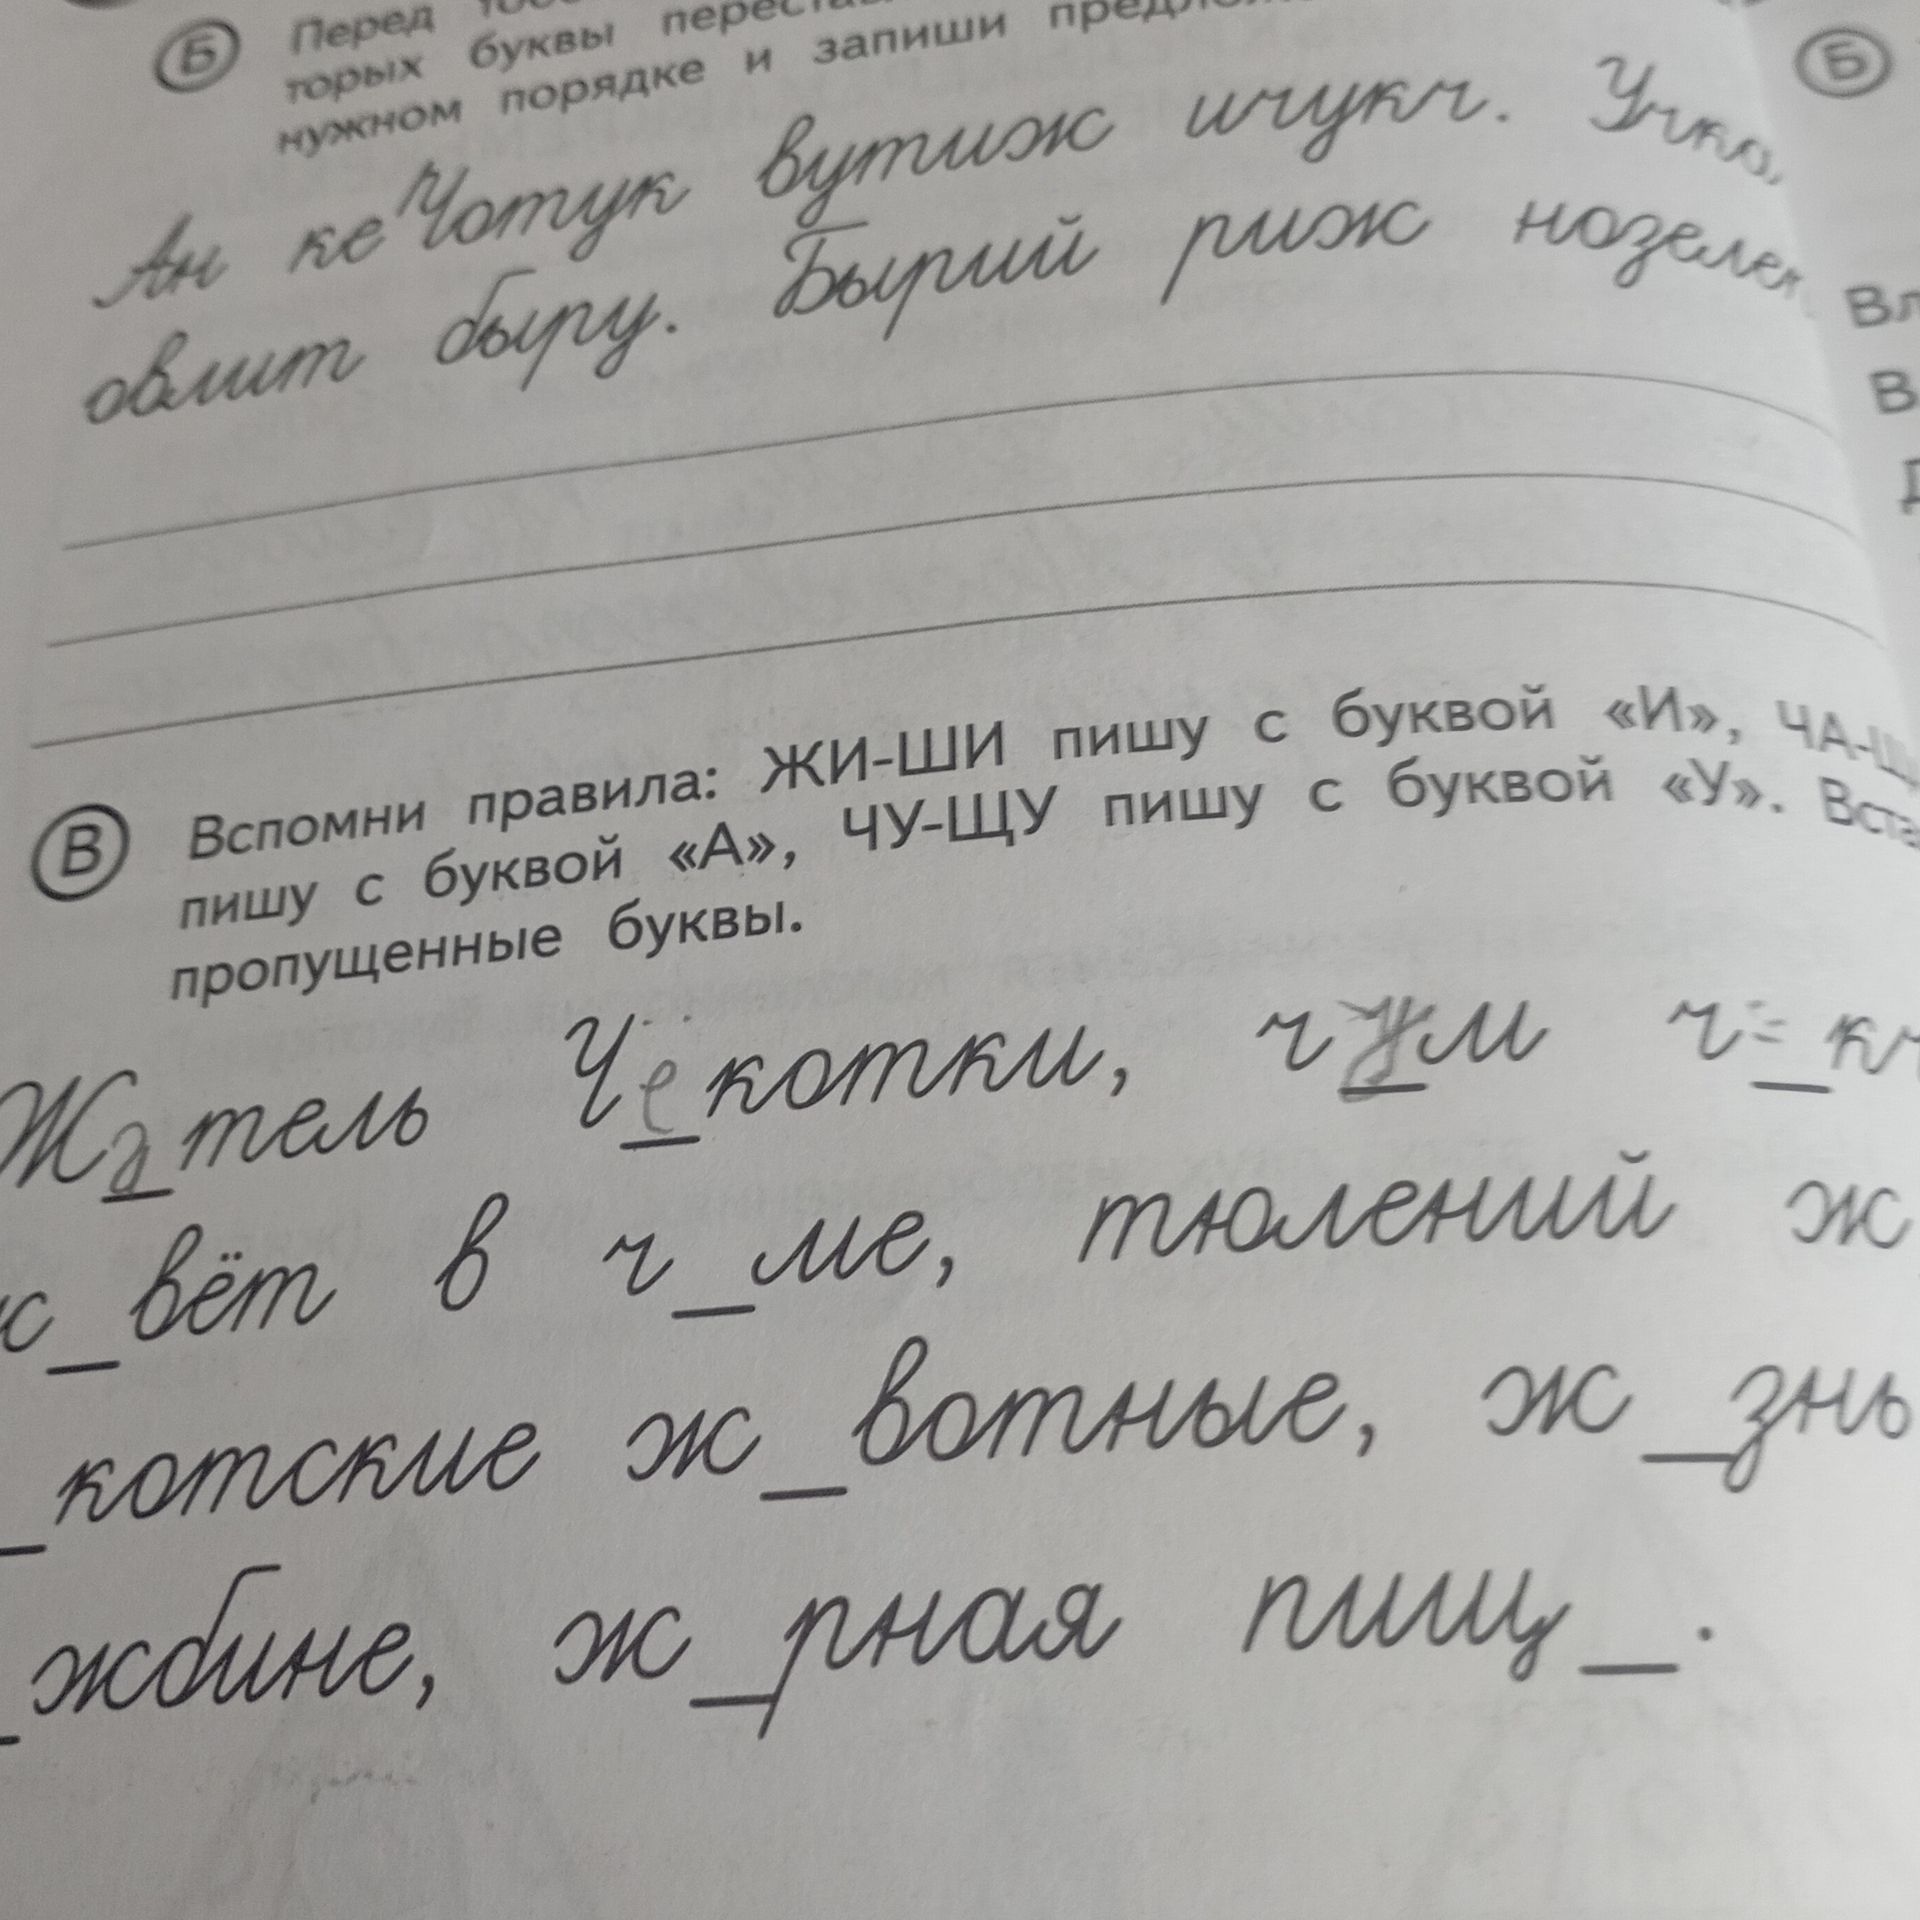 Б Перед
торых буквы
нужном порядке и запиши
Ан кеЧотук вутиж ичукч. Учка,
овлит быру. Бырий риж нозелен
В Вспомни правила: ЖИ-ШИ пишу с буквой «И», ЧА-Щ
пишу с буквой «А», ЧУ-ЩУ пишу с буквой «У». Вста
пропущенные буквы.
Жатель Чекотки, чум ч_кч
_вёт в ч_ме, тюлений ж
_котские ж_вотные, ж_знь
_жбине, ж_рная пищ_.
Б
Вл
В